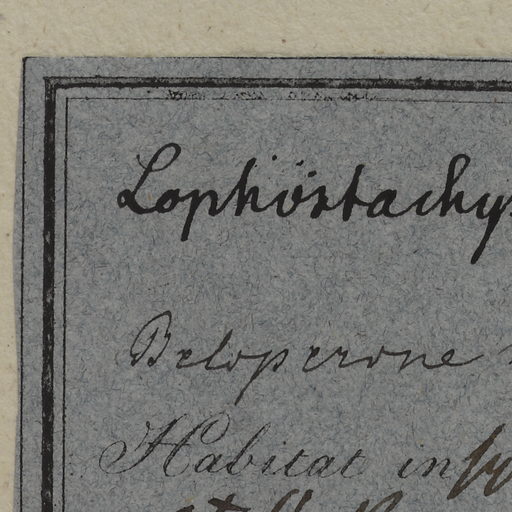 Lophostachys
Beloperone
Habitat in